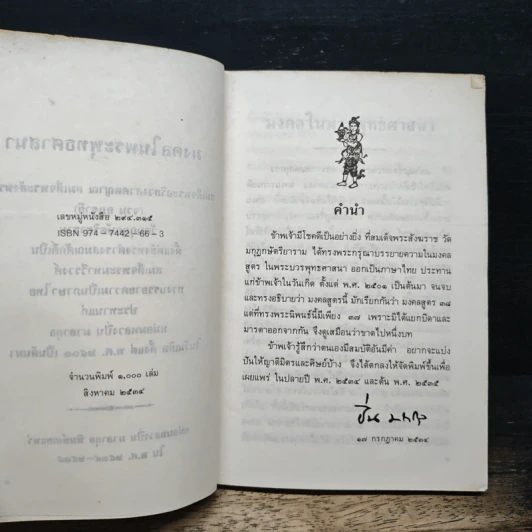 เลขหมู่หนังสือ ๒๙๔.๓๑๕
ISBN 974-7442-66-3
จำนวนพิมพ์ ๑,๐๐๐ เล่ม
สิงหาคม ๒๕๓๔
คำนำ
ข้าพเจ้ามีโชคดีเป็นอย่างยิ่ง ที่สมเด็จพระสังฆราช วัด
มกุฏกษัตริยาราม ได้ทรงพระกรุณาบรรยายความในมงคล
สูตร ในพระบวรพุทธศาสนา ออกเป็นภาษาไทย ประทาน
แก่ข้าพเจ้าในวันเกิด ตั้งแต่ พ.ศ. ๒๕๐๑ เป็นต้นมา จนจบ
และทรงอธิบายว่า มงคลสูตรนี้ มักเรียกกันว่า มงคลสูตร ๓๘
แต่ที่ทรงพระนิพนธ์นี้มีเพียง ๓๗ เพราะมิได้แยกบิดาและ
มารดาออกจากกัน จึงดูเสมือนว่าขาดไปหนึ่งบท
ข้าพเจ้ารู้สึกว่าตนเองมีสมบัติอันมีค่า อยากจะแบ่ง
ปันให้ญาติมิตรและศิษย์บ้าง จึงได้ตกลงให้จัดพิมพ์ขึ้นเพื่อ
เผยแพร่ ในปลายปี พ.ศ. ๒๕๓๔ และต้น พ.ศ. ๒๕๓๕
๑๗ กรกฎาคม ๒๕๓๔